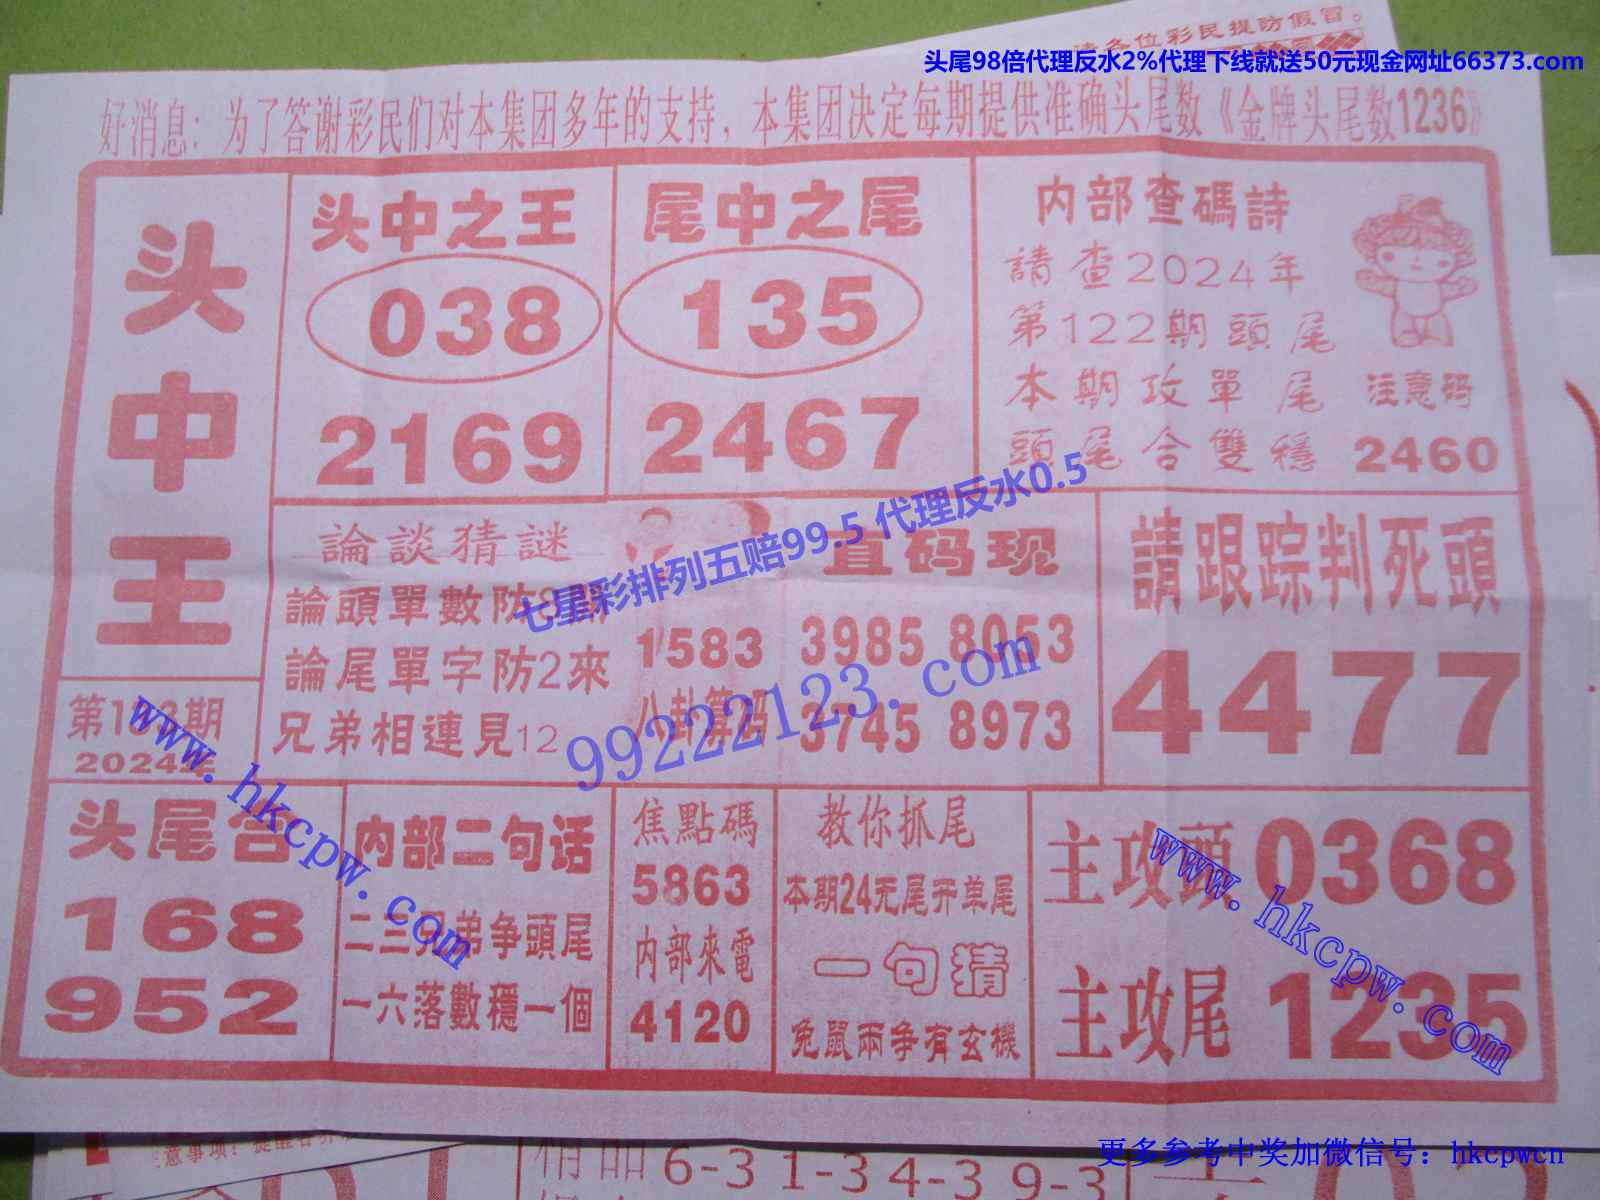 请各位彩民提防假冒。
头尾98倍代理反水2%代理下线就送50元现金网址66373.com
好消息：为了答谢彩民们对本集团多年的支持，本集团决定每期提供准确头尾数《金牌头尾数1236》
头中王
第1 3期
2024年
头中之王
038
2169
尾中之尾
135
2467
内部查碼詩
請查2024年
第122期頭尾
本期攻單尾
頭尾合雙穩
注意码
2460
論談猜謎
論頭單數防8
論尾單字防2來
兄弟相連見12
1583
八卦算码
直码现
3985 8053
3745 8973
請跟踪判死頭
4477
七星彩排列五赔99.5 代理反水0.5
99222123.com
www.hkcpw.com
头尾合
168
952
内部二句话
二三兄弟争頭尾
一六落數穩一個
焦點碼
5863
内部來電
4120
教你抓尾
本期24无尾开单尾
一句猜
兔鼠兩争有玄機
主攻頭 0368
主攻尾 1235
www.hkcpw.com
更多参考中奖加微信号：hkcpwcn
注意事项：提醒各
精品
6-31-34-39-3